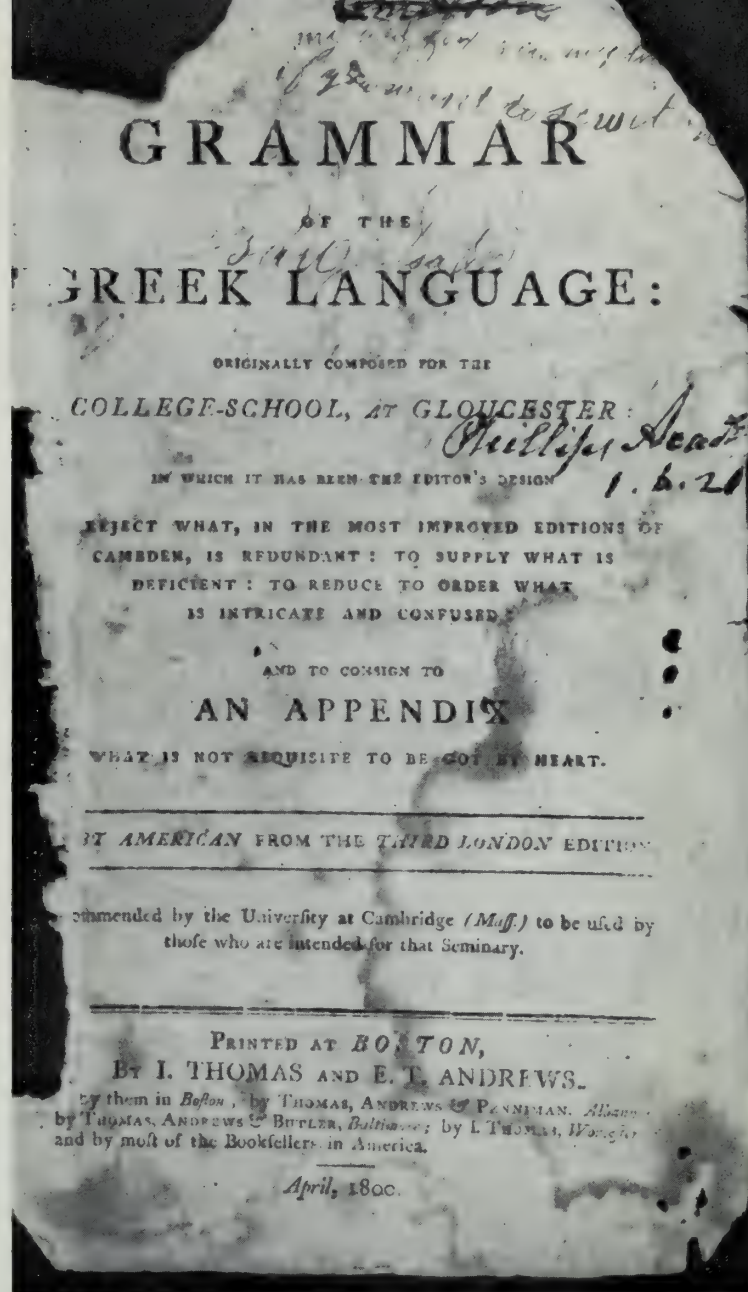 GRAMMAR
OF THE
GREEK LANGUAGE:
ORIGINALLY COMPOSED FOR THE
COLLEGE-SCHOOL, AT GLOUCESTER:
Phillips Acad
1.6.21
IN WHICH IT HAS BEEN THE EDITOR'S DESIGN
REJECT WHAT, IN THE MOST IMPROVED EDITIONS OF
CAMBDEN, IS REDUNDANT: TO SUPPLY WHAT IS
DEFICIENT: TO REDUCE TO ORDER WHAT
IS INTRICATE AND CONFUSED:
AND TO CONSIGN TO
AN APPENDIX
WHAT IS NOT REQUISITE TO BE GOT BY HEART.
AMERICAN FROM THE THIRD LONDON EDITION
ommended by the Univerſity at Cambridge (Maſſ.) to be uſed by
thoſe who are intended for that Seminary.
PRINTED AT BOSTON,
BY I. THOMAS AND E. T. ANDREWS.
by them in Boſton; by THOMAS, ANDREWS & PENNIMAN, Albany
by THOMAS, ANDREWS & BUTLER, Baltimore; by I. THOMAS,
and by moſt of the Bookſellers in America.
April, 1800.